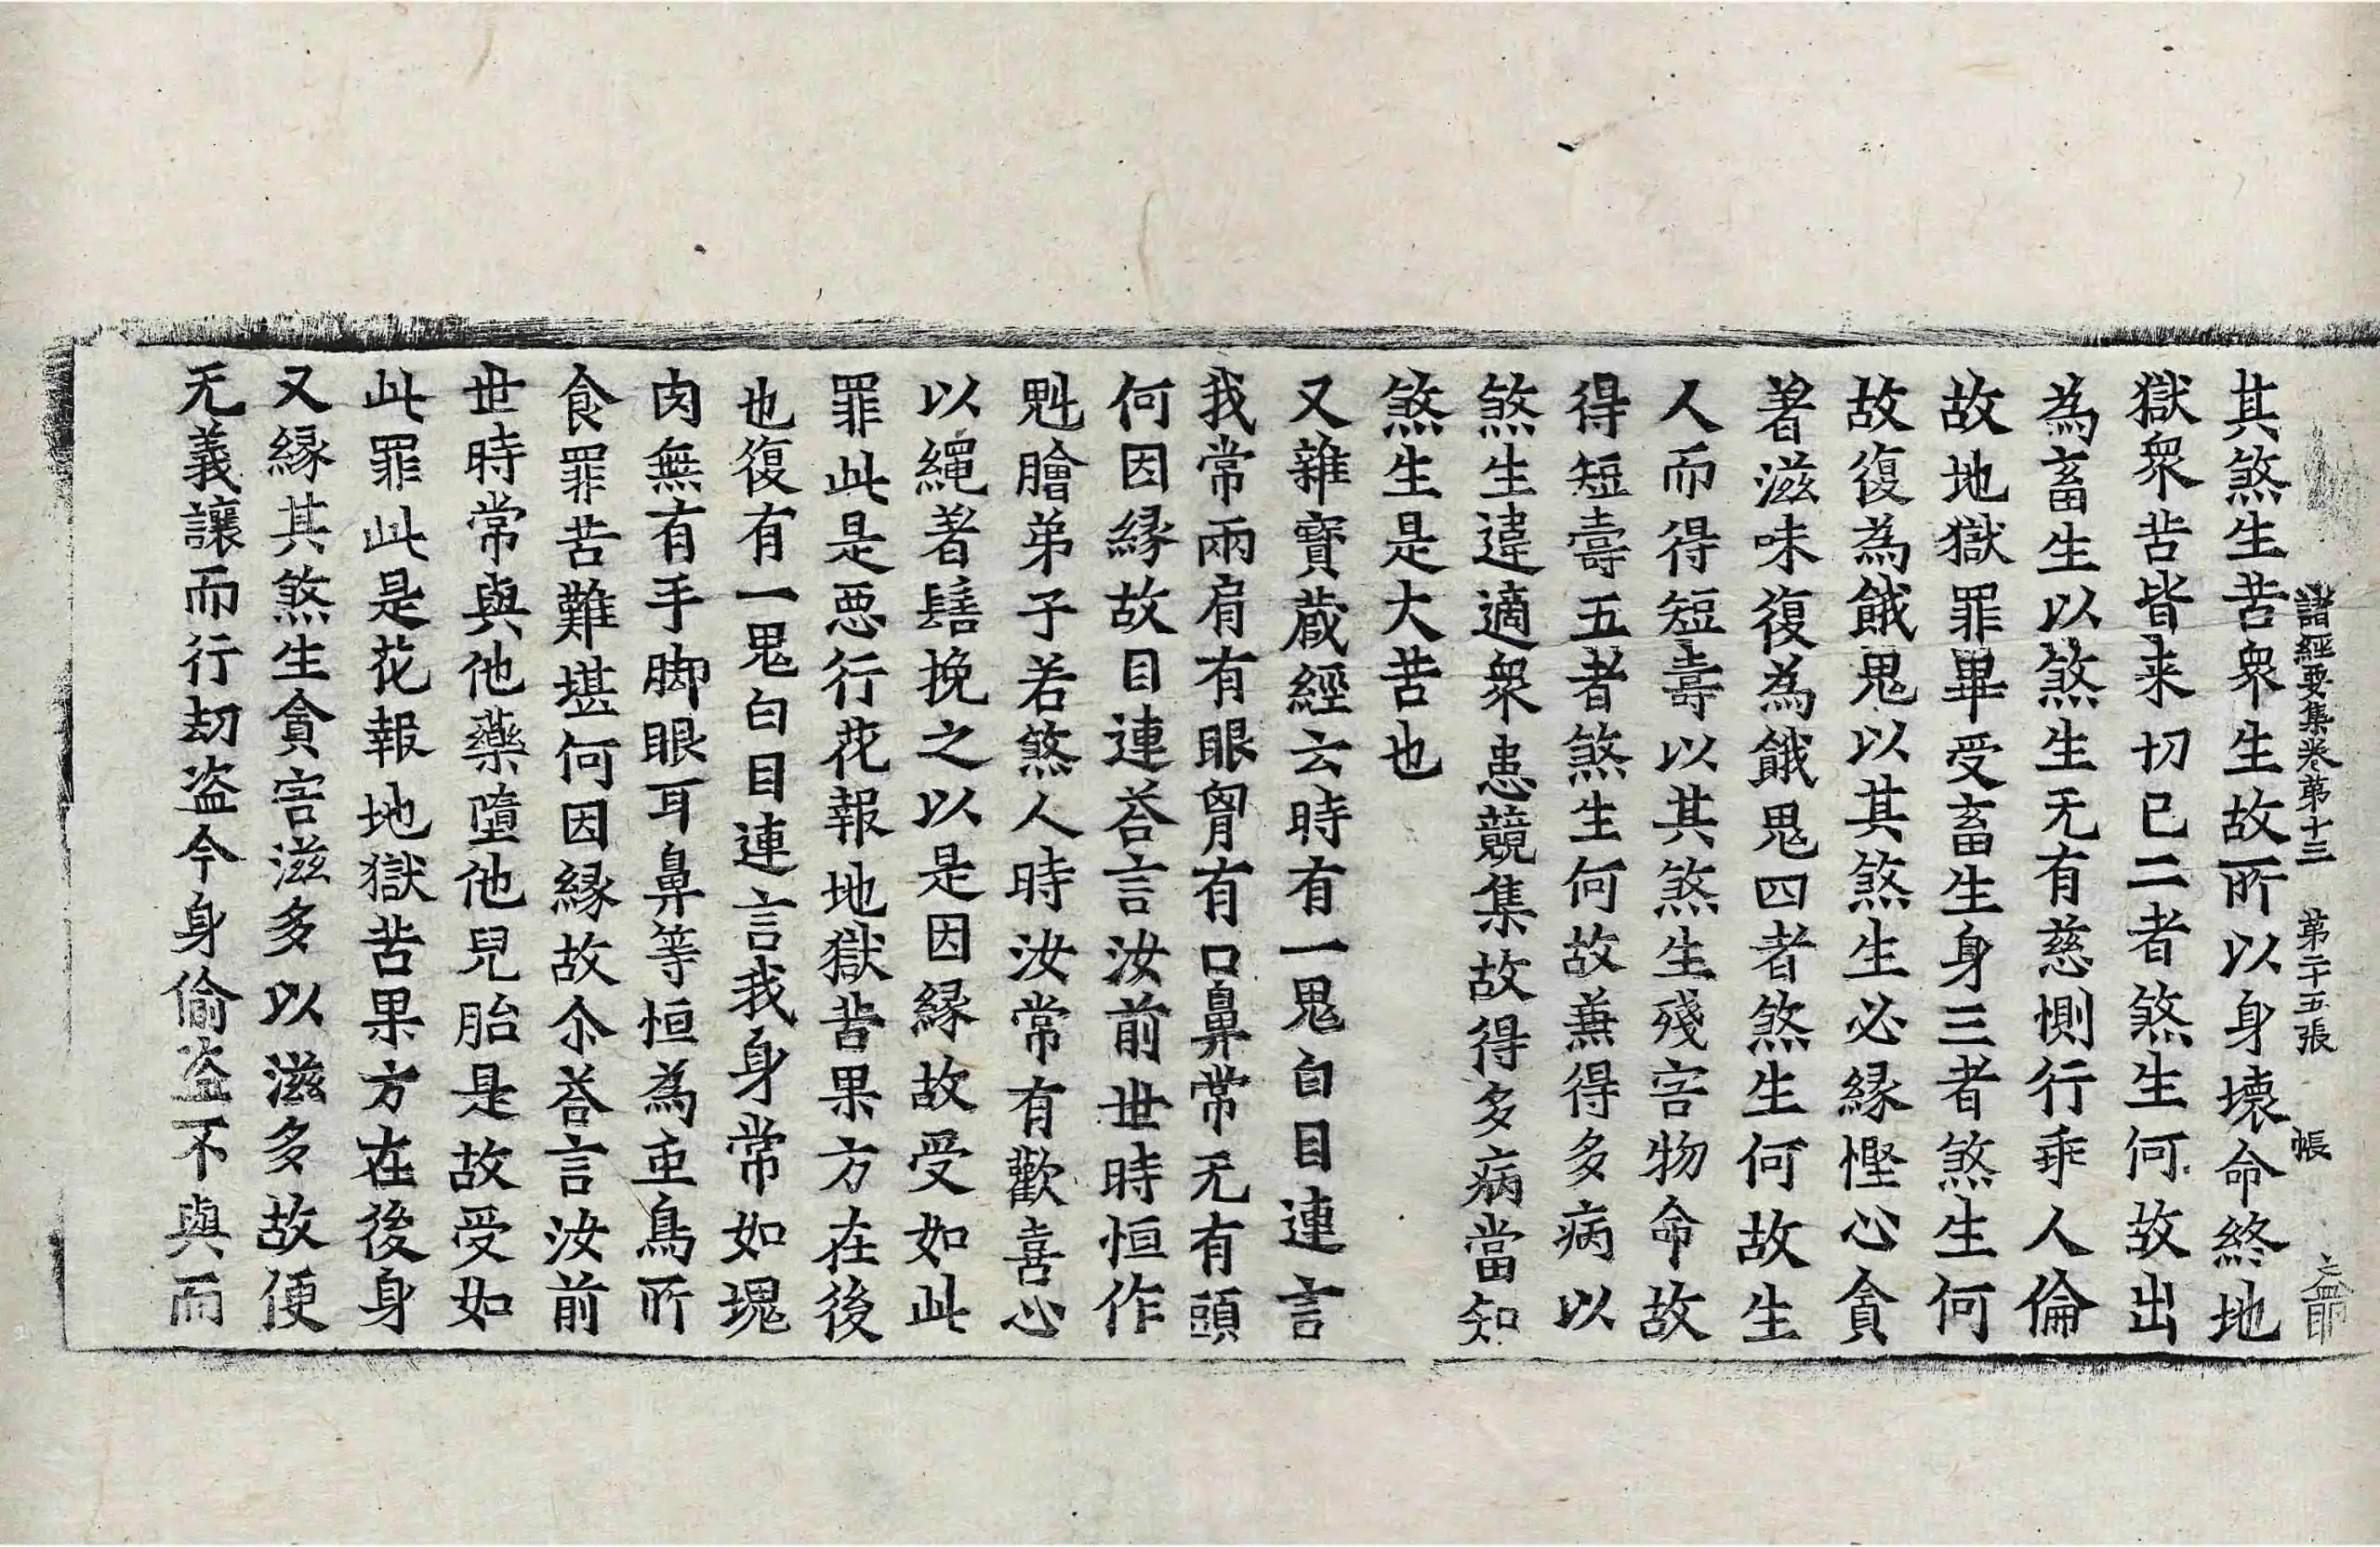 諸經要集卷第十三 第二十五張 帳
其煞生苦衆生故所以身壞命終地
獄衆苦皆来切已二者煞生何故出
為畜生以煞生无有慈惻行乖人倫
故地獄罪畢受畜生身三者煞生何
故復為餓鬼以其煞生必縁慳心貪
著滋味復為餓鬼四者煞生何故生
人而得短壽以其煞生殘害物命故
得短壽五者煞生何故兼得多病以
煞生違適衆患競集故得多病當知
煞生是大苦也
又雜寶蔵經云時有一鬼白目連言
我常兩肩有眼胷有口鼻常无有頭
何因縁故目連荅言汝前世時恒作
魁膾弟子若煞人時汝常有歡喜心
以繩著髻挽之以是因縁故受如此
罪此是悪行花報地獄苦果方在後
也復有一鬼白目連言我身常如塊
肉無有手脚眼耳鼻等恒為䖝鳥所
食罪苦難堪何因縁故尒荅言汝前
世時常與他藥墮他兒胎是故受如
此罪此是花報地獄苦果方在後身
又縁其煞生貪害滋多以滋多故便
无義讓而行刼盗今身偷盗不與而